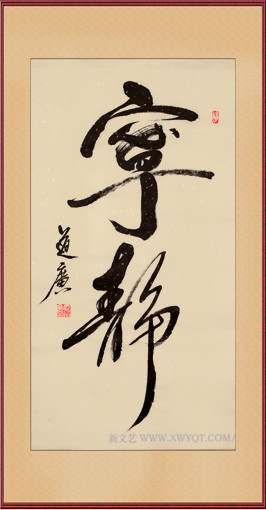 寧靜
道廣
新文艺 WWW.XWYQT.COM/